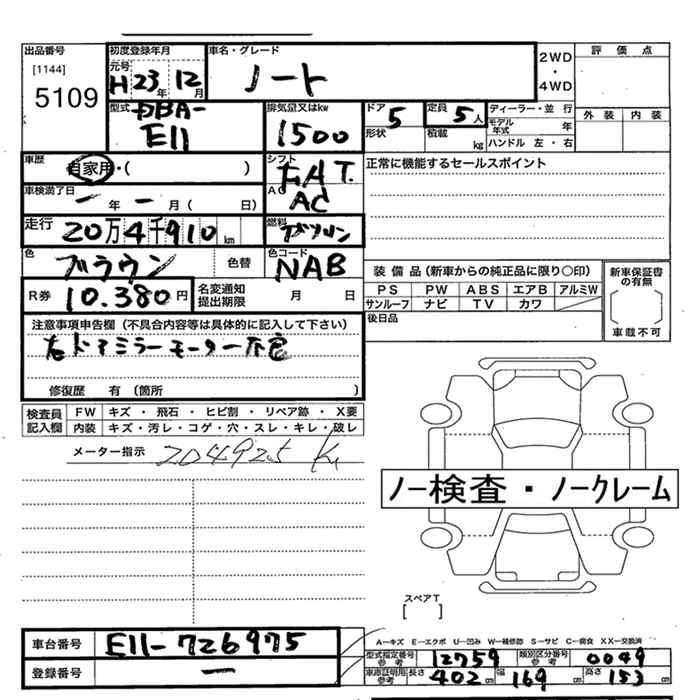 出品番号 初度登録年月 車名・グレード 評価点
[1144] 元号 H23年12月 ノート 2WD・4WD
5109
型式 DBA-E11 排気量又はkw 1500 ドア 5 形状 定員 5人 積載 kg ディーラー・並行 モデル年式 年 ハンドル 左・右 外装 内装
車歴 自家用・( ) シフト FAT. 正常に機能するセールスポイント
車検満了日 ー年ー月( 日) AC AC
走行 20万4千910km 燃料 ガソリン
色 ブラウン 色替 色コード NAB
装備品(新車からの純正品に限り○印) 新車保証書の有無
R券 10.380円 名変通知提出期限 月 日 PS PW ABS エアB アルミW
サンルーフ ナビ TV カワ
注意事項申告欄(不具合内容等は具体的に記入して下さい) 後日品 車載不可
右ドアミラーモーター不良
修復歴 有(箇所 )
検査員記入欄 FW キズ・飛石・ヒビ割・リペア跡・X要
内装 キズ・汚レ・コゲ・穴・スレ・キレ・破レ
メーター指示 204925 Km
ノー検査・ノークレーム
スペアT
[ ]
車台番号 E11-726975 A―キズ E―エクボ U―凹み W―補修跡 S―サビ C―腐食 XX―交換済
型式指定番号 参考 12759 類別区分番号 参考 0049
登録番号 ー 車庫証明用 参考 長さ 402cm 幅 169cm 高さ 153cm